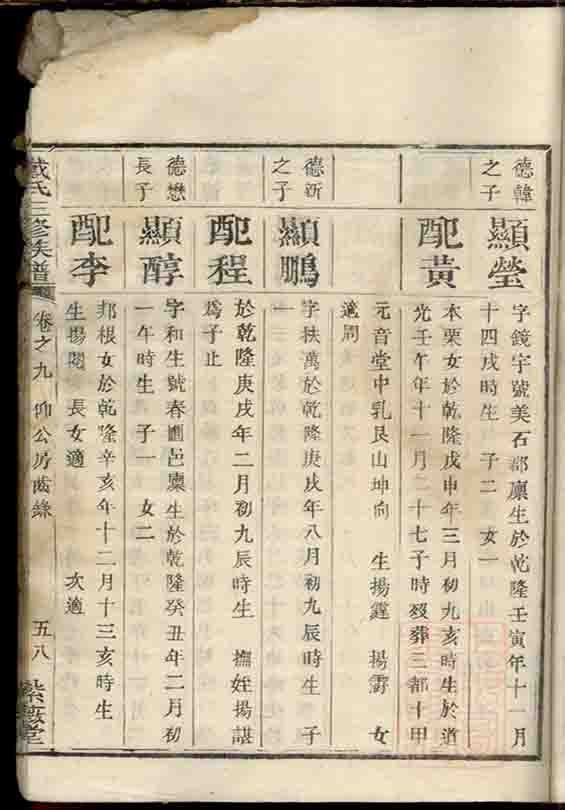 德韓
之子
顯瑩
字鏡宇號美石郡廪生於乾隆壬寅年十一月
十四戌時生 子二 女一
配黃
本栗女於乾隆戊申年三月初九亥時生於道
光壬午年十一月二十七子時歿葬三都十甲
元音堂中乳艮山坤向 生揚霆 揚霨 女
適周
德新
之子
顯鵬
字扶萬於乾隆庚戌年八月初九辰時生 子
一
配程
於乾隆庚戌年二月初九辰時生 撫姪揚諶
爲子止
德懋
長子
顯醇
字和生號春圃邑廪生於乾隆癸丑年二月初
一午時生 子一 女二
配李
邦根女於乾隆辛亥年十二月十三亥時生
生揚閣 長女適 次適
戴氏三修族譜 卷之九 仰公房齒錄 五八 紫蔭堂